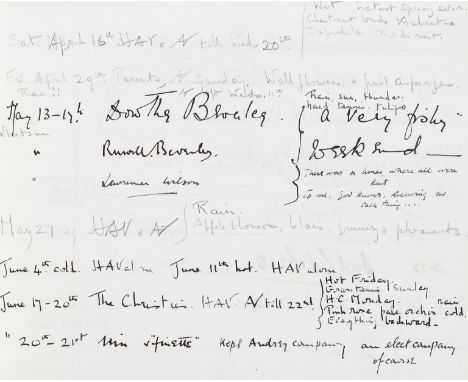 Wet. Latest Spring ever.
Chestnut buds
Daffodils. Bed
Sat. April 16th HAV & N till Weds 20th.
Fri. April 29th. Parents, N Sunday. Wallflowers & first asparagus.
Rain!!
May 13-17th Dorothy Beverley. Rain, sun, thunder. "A very fishy
Whitsun tulips.
" Russell Beverley. weekend
" Lawrence Wilson There was a house where all were
kent
to me, God knows, deserving no
such thing....
May 27-29 HAV & N Rain.
Apple blossom, lilacs, & pheasants.
June 4th cold. HAV alone June 11th hot. HAV alone
Hot Friday.
Sunday
June 17-20th The Christies. HAV. N till 22nd H.C. Monday. rain
Pink rose pale orchis cold.
Everything backward.
" 20th-21st Kept Audrey company, an elect company
of course